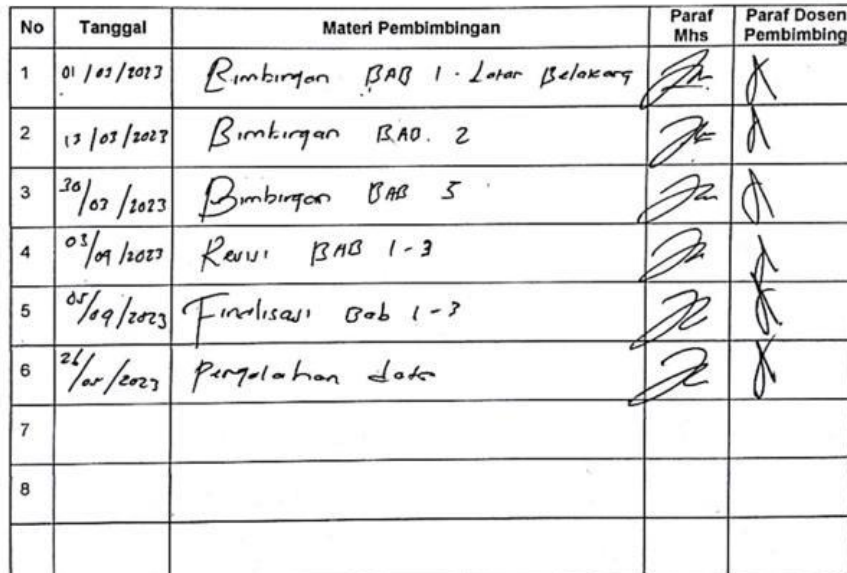 No Tanggal Materi Pembimbingan Paraf Mhs Paraf Dosen Pembimbing
1 01/03/2023 Bimbingan BAB 1 - Latar Belakang
2 13/03/2023 Bimbingan BAB. 2
3 30/03/2023 Bimbingan BAB 3
4 03/04/2023 Revisi BAB 1-3
5 05/04/2023 Finalisasi Bab 1-3
6 26/05/2023 Pengolahan data
7
8